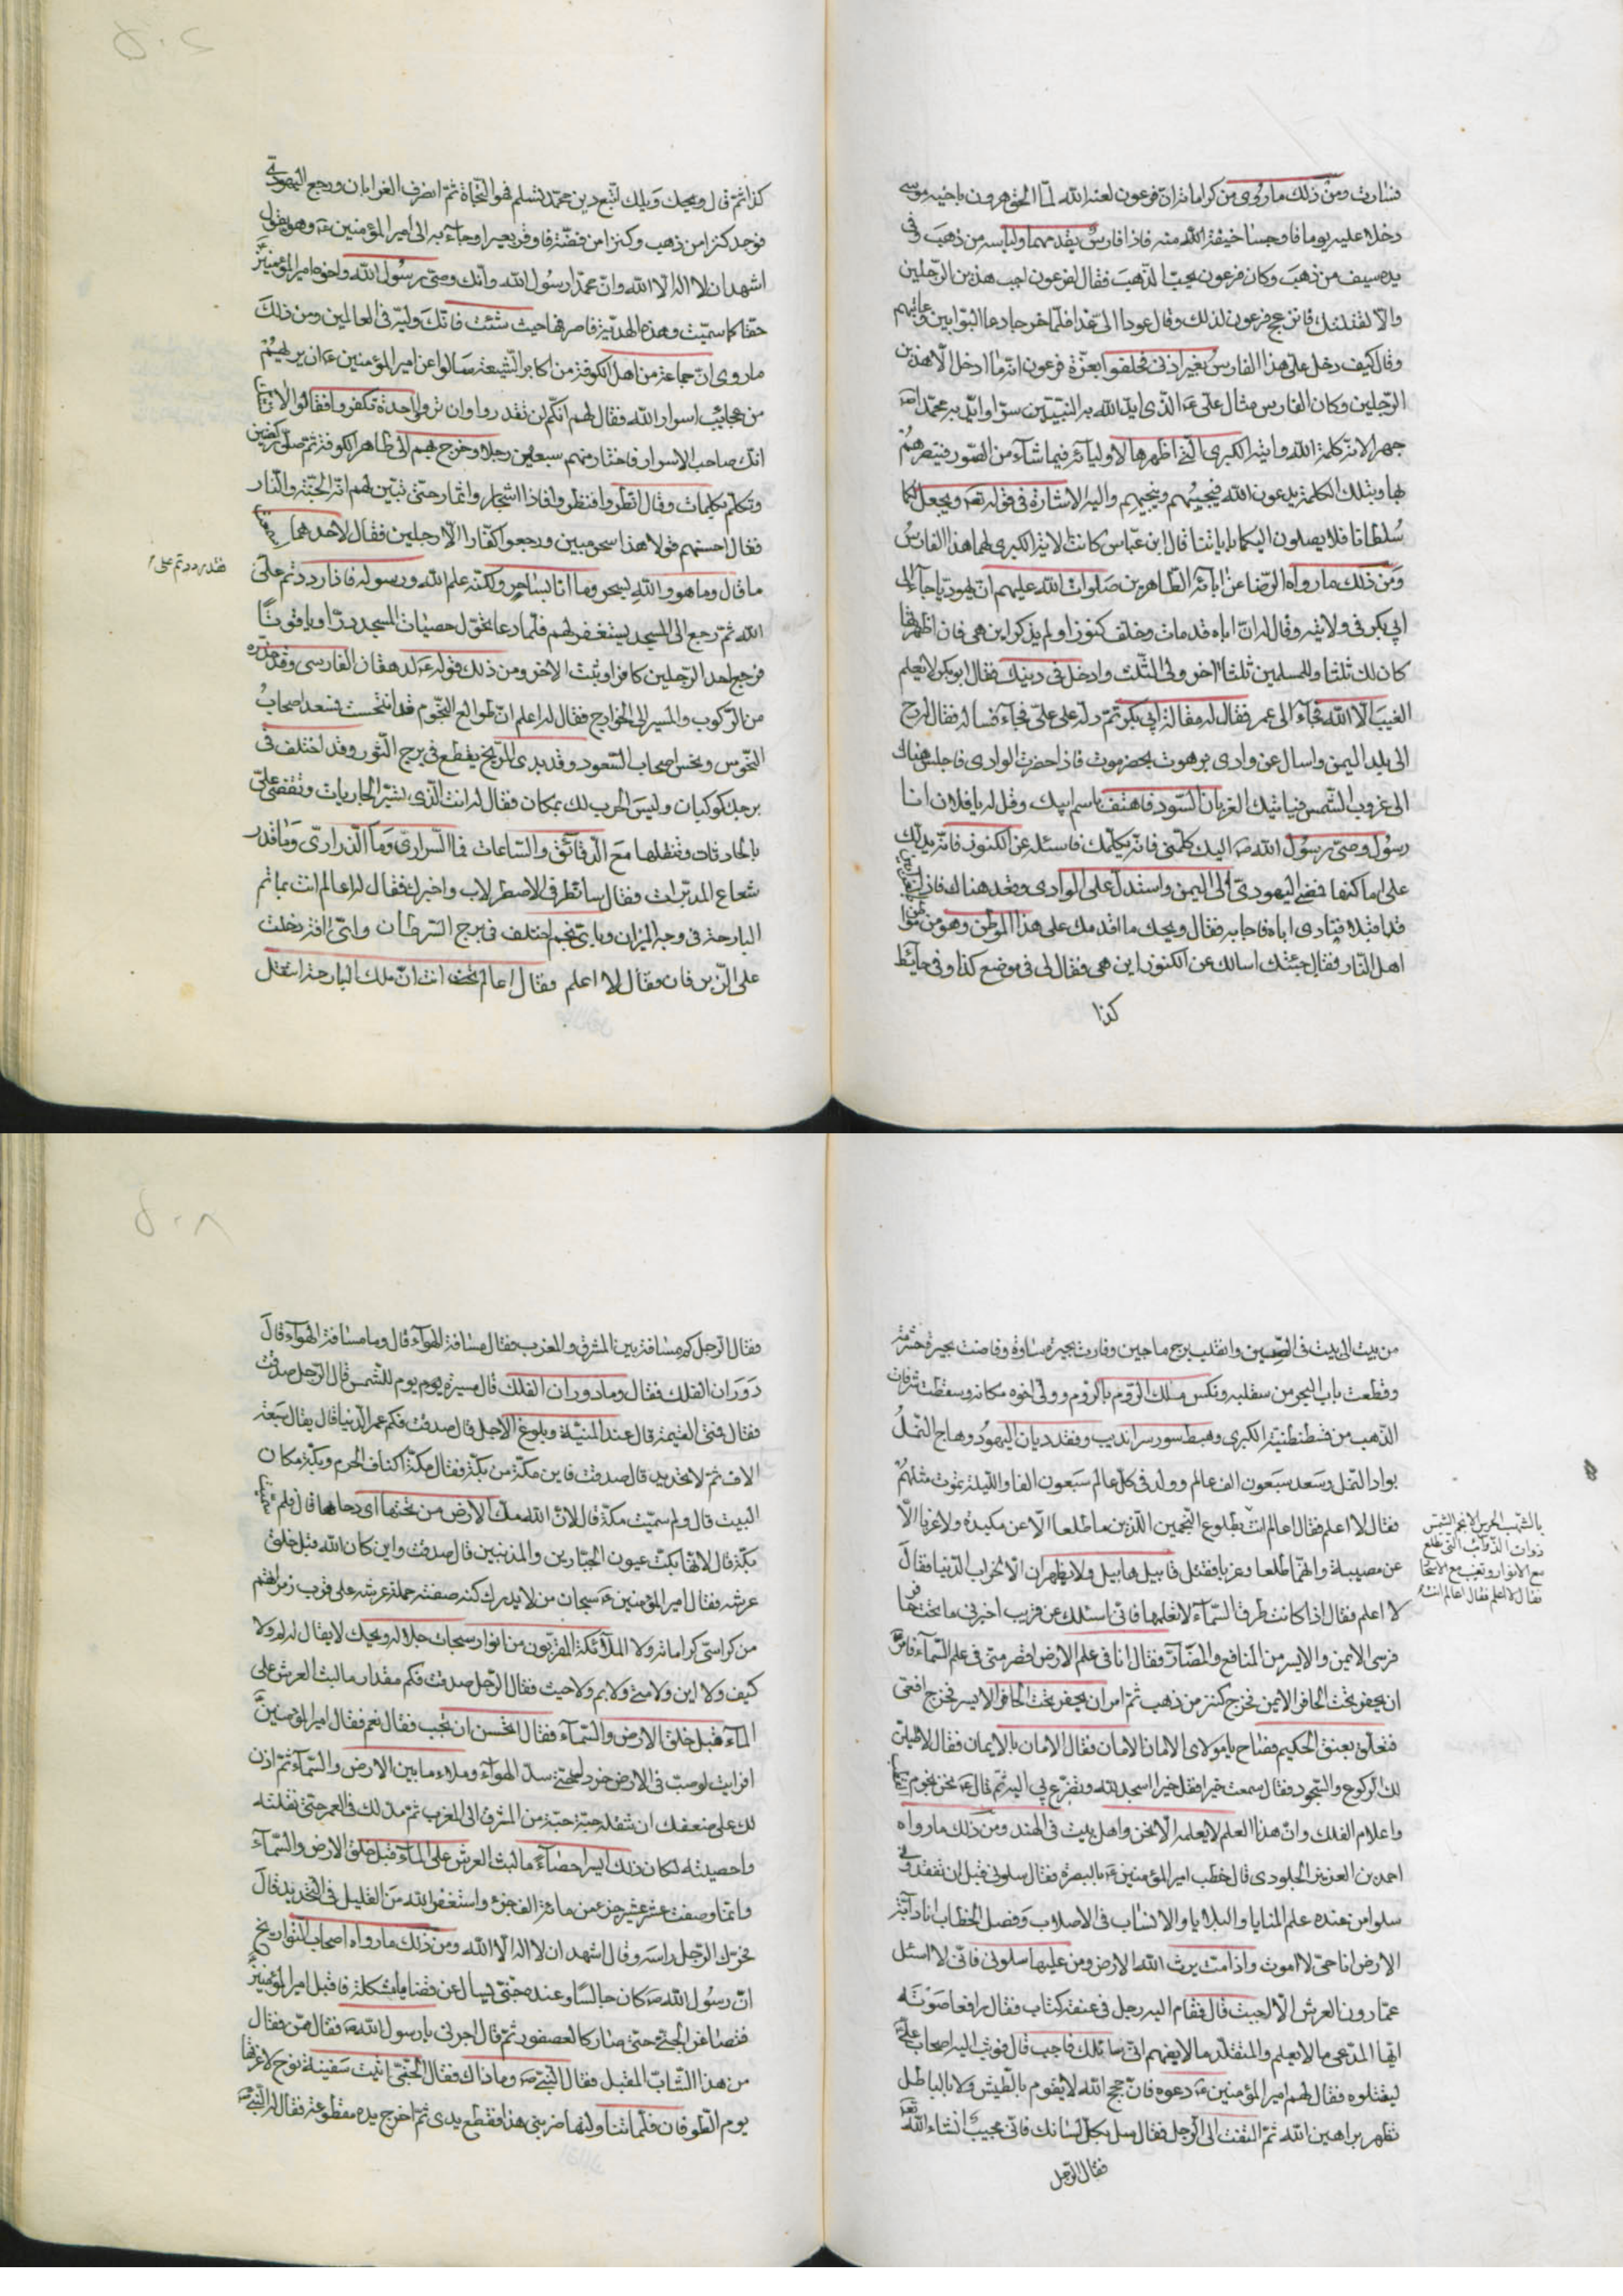 فسارت ومن ذلك ماروى من كراماته ان فرعون لعنه الله لما الحق هرون باخيه موسى
دخلا عليه يوما فاوجسا خيفة الله منه فاذا فارس يقدمهما ولباسه من ذهب وفى
يده سيف من ذهب وكان فرعون يحب الذهب فقال لفرعون اجب هذين الرجلين
والا لقتلتك فانزعج فرعون لذلك وقال عودا الى غدا فلما خرجا دعا البوابين وعاقبهم
وقال كيف دخل على هذا الفارس بغير اذن فحلفوا بعزة فرعون انه ما ادخل الا هذين
الرجلين وكان الفارس مثال على ع الذى ايد الله به النبيين سرا وايد به محمدا ص
جهرا لانه كلمة الله وايته الكبرى التى اظهرها لاوليائه فيما شاء من الصور فينصرهم
بها وبتلك الكلمة يدعون الله فيجيبهم وينجيهم واليه الاشارة فى قوله تعه ويجعل لكما
سلطانا فلا يصلون اليكما باياتنا قال ابن عباس كانت الاية الكبرى لهما هذا الفارس
ومن ذلك مارواه الرضا عن ابائه الطاهرين صلوات الله عليهم ان يهوديا جاء الى
ابى بكر فى ولايته وقال له ان اباه قد مات وخلف كنوزا ولم يذكر اين هى فان اظهرتها
كان لك ثلثا وللمسلمين ثلثا اخر ولى الثلث وادخل فى دينك فقال ابو بكر لا يعلم
الغيب الا الله فجاء الى عمر فقال له مقالة ابى بكر ثم دله على على فجاء فساله فقال له رح
الى بلد اليمن واسال عن وادى برهوت بحضرموت فاذا حضرت الوادى فاجلس هناك
الى غروب الشمس فياتيك الغربان السود فاهتف باسم ابيك وقل له يا فلان انا
رسول وصى رسول الله ص اليك كلمنى فانه يكلمك فاسئله عن الكنوز فانه يدلك
على اماكنها فمضى اليهودى الى اليمن واستدل على الوادى وقعد هناك فاذا
قد اقبلا فنادى اباه فاجابه فقال ويحك ما اقدمك على هذا الموطن وهو من مواطن
اهل النار فقال جئتك اسالك عن الكنوز اين هى فقال لى فى موضع كذا وفى حايط
كذا
كذا ثم قال ويحك ويلك اتبع دين محمد تسلم فهو النجاة ثم انصرف الغرابان ورجع اليهودى
فوجد كنزا من ذهب وكنزا من فضة فاوقر بعيرا وجاء به الى امير المؤمنين ع وهو يقول
اشهد ان لا اله الا الله وان محمدا رسول الله وانك وصى رسول الله واخوه وامير المؤمنين
حقا كما سميت وهذه الهدية فاصرفها حيث شئت فانك وليه فى العالمين ومن ذلك
ماروى ان جماعة من اهل الكوفة من اكابر الشيعة سالوا عن امير المؤمنين ع ان يريهم
من عجايب اسرار الله فقال لهم انكم لن تقدروا وان تروا واحدة تكفروا فقالوا لا
انك صاحب الاسرار فاختار منهم سبعين رجلا وخرج بهم الى ظاهر الكوفة ثم صلى ركعتين
وتكلم بكلمات وقال انظروا فنظروا فاذا اشجار واثمار حتى تبين لهم انه الجنة والنار
فقال احسنهم قولا هذا سحر مبين ورجعوا كفارا الا رجلين فقال لاحدهما
ما قال وما هو والله بسحر وما انا بساحر ولكنه علم الله ورسوله فاذا رددتم على
فقد رددتم على
الله ثم رجع الى المسجد يستغفر لهم فلما دعا تحول حصيات المسجد درا وياقوتا
فرجع احد الرجلين كافرا وثبت الاخر ومن ذلك قوله ع لدهقان الفارسى وقد حذره
من الركوب والمسير الى الخوارج فقال له اعلم ان طوالع النجوم قد انتحست فسعد اصحاب
النحوس ونحس اصحاب السعود وقد بدى المريخ يقطع فى برج الثور وقد اختلف فى
برجك كوكبان وليس الحرب لك بمكان فقال له انت الذى تسير الجاريات وتقضى على
بالحادثات وتنقلها مع الدقائق والساعات فما السرارى وما الذرارى وما قدر
شعاع المدبرات فقال سانظر فى الاصطرلاب واخبرك فقال له اعالم انت بما تم
البارحة فى وجه الميزان وباى نجم اختلف فى برج السرطان واى افة دخلت
على الزبرقان فقال لا اعلم فقال اعالم انت ان ملك البارحة انتقل
من بيت الى بيت فى الصين وانقلب برج ماجين وغارت بحيرة ساوة وفاضت بحيرة خشرمة
وقطعت باب البحر من سقلبه ونكس ملك الروم بالروم وولى اخوه مكانه وسقطت شرفات
الذهب من قسطنطنية الكبرى وهبط سور سرانديب وفقد ديان اليهود وهاج النمل
بواد النمل وسعد سبعون الف عالم وولد فى كل عالم سبعون الفا والليلة يموت مثلهم
فقال لا اعلم فقال اعالم انت بطلوع النجمين الذين ما طلعا الا عن مكيدة ولا غربا الا
بالشهب الخرس الانجم الشمس
ذوات الذوائب التى تطلع
مع الانوار وتغيب مع الاسحار
فقال لا اعلم فقال اعالم انت
عن مصيبة وانهما طلعا وغربا فقتل قابيل هابيل ولا يظهران الا لخراب الدنيا فقال
لا اعلم فقال اذا كانت طرق السماء لا تعلمها فانى اسئلك عن قريب اخبرنى ما تحت حافر
فرسى الايمن والايسر من المنافع والمضار فقال انا فى علم الارض اقصر منى فى علم السماء فامر
ان يحفر تحت الحافر الايمن فخرج كنز من ذهب ثم امر ان يحفر تحت الحافر الايسر فخرج افعى
فتعلق بعنق الحكيم فصاح يا مولاى الامان الامان فقال الامان بالايمان فقال لاطيلن
لك الركوع والسجود فقال سمعت خيرا فقل خيرا اسجد لله وتضرع بى اليه ثم قال ع نحن نجوم
واعلام الفلك وان هذا العلم لا يعلمه الا نحن واهل بيت فى الهند ومن ذلك مارواه
احمد بن العزيز الجلودى قال خطب امير المؤمنين ع بالبصرة فقال سلونى قبل ان تفقدونى
سلوا من عنده علم المنايا والبلايا والانساب فى الاصلاب وفصل الخطاب انا دابة
الارض انا حى لا اموت واذا مت يرث الله الارض ومن عليها سلونى فانى لا اسئل
عما دون العرش الا اجبت قال فقام اليه رجل فى عنقه كتاب فقال رافعا صوته
ايها المدعى ما لا يعلم والمتقلد ما لا يفهم انى سائلك فاجب قال فوثب اليه اصحاب على
ليقتلوه فقال لهم امير المؤمنين ع دعوه فان حجج الله لا يقوم بالطيش ولا بالباطل
تظهر براهين الله ثم التفت الى الرجل فقال سل بكل لسانك فانى مجيب انشاء الله تعه
فقال الرجل
فقال الرجل كم مسافة بين المشرق والمغرب فقال مسافة الهواء قال وما مسافة الهواء قال
دوران الفلك فقال وما دوران الفلك قال مسيرة يوم للشمس قال الرجل صدقت
فقال فمتى القيمة قال عند المنية وبلوغ الاجل قال صدقت فكم عمر الدنيا قال يقال سبعة
الاف ثم لا تحديد قال صدقت فاين مكة من بكة فقال مكة اكناف الحرم وبكة مكان
البيت قال ولم سميت مكة قال لان الله مك الارض من تحتها اى دحاها قال فلم سميت
بكة قال لانها بكت عيون الجبارين والمذنبين قال صدقت واين كان الله قبل خلق
عرشه فقال امير المؤمنين ع سبحان من لا يدرك كنه صفته حملة عرشه على قرب زمراتهم
من كراسى كراماته ولا الملائكة المقربون من انوار سبحات جلاله ويحك لا يقال له لم ولا
كيف ولا اين ولا متى ولا بم ولا حيث فقال الرجل صدقت فكم مقدار ما لبث العرش على
الماء قبل خلق الارض والسماء فقال اتحسن ان تحسب فقال نعم فقال امير المؤمنين
افرايت لو صب فى الارض خردل حتى سد الهواء وملاء ما بين الارض والسماء ثم اذن
لك على ضعفك ان تنقله حبة حبة من المشرق الى المغرب ثم مد لك فى العمر حتى نقلته
واحصيته لكان ذلك ايسر احصاء ما لبث العرش على الماء قبل خلق الارض والسماء
وانما وصفت عشر عشير جزء من مائة الف جزء واستغفر الله من القليل فى التحديد قال
فحرك الرجل راسه وقال اشهد ان لا اله الا الله ومن ذلك مارواه اصحاب التواريخ
ان رسول الله ص كان جالسا وعنده جنى يسال عن قضايا مشكلة فاقبل امير المؤمنين
فتصاغر الجنى حتى صار كالعصفور ثم قال اجرنى يا رسول الله ص فقال ممن فقال
من هذا الشاب المقبل فقال النبى ص وما ذاك فقال الجنى اتيت سفينة نوح لاغرقها
يوم الطوفان فلما تناولتها ضربنى هذا فقطع يدى ثم اخرج يده مقطوعة فقال له النبى ص